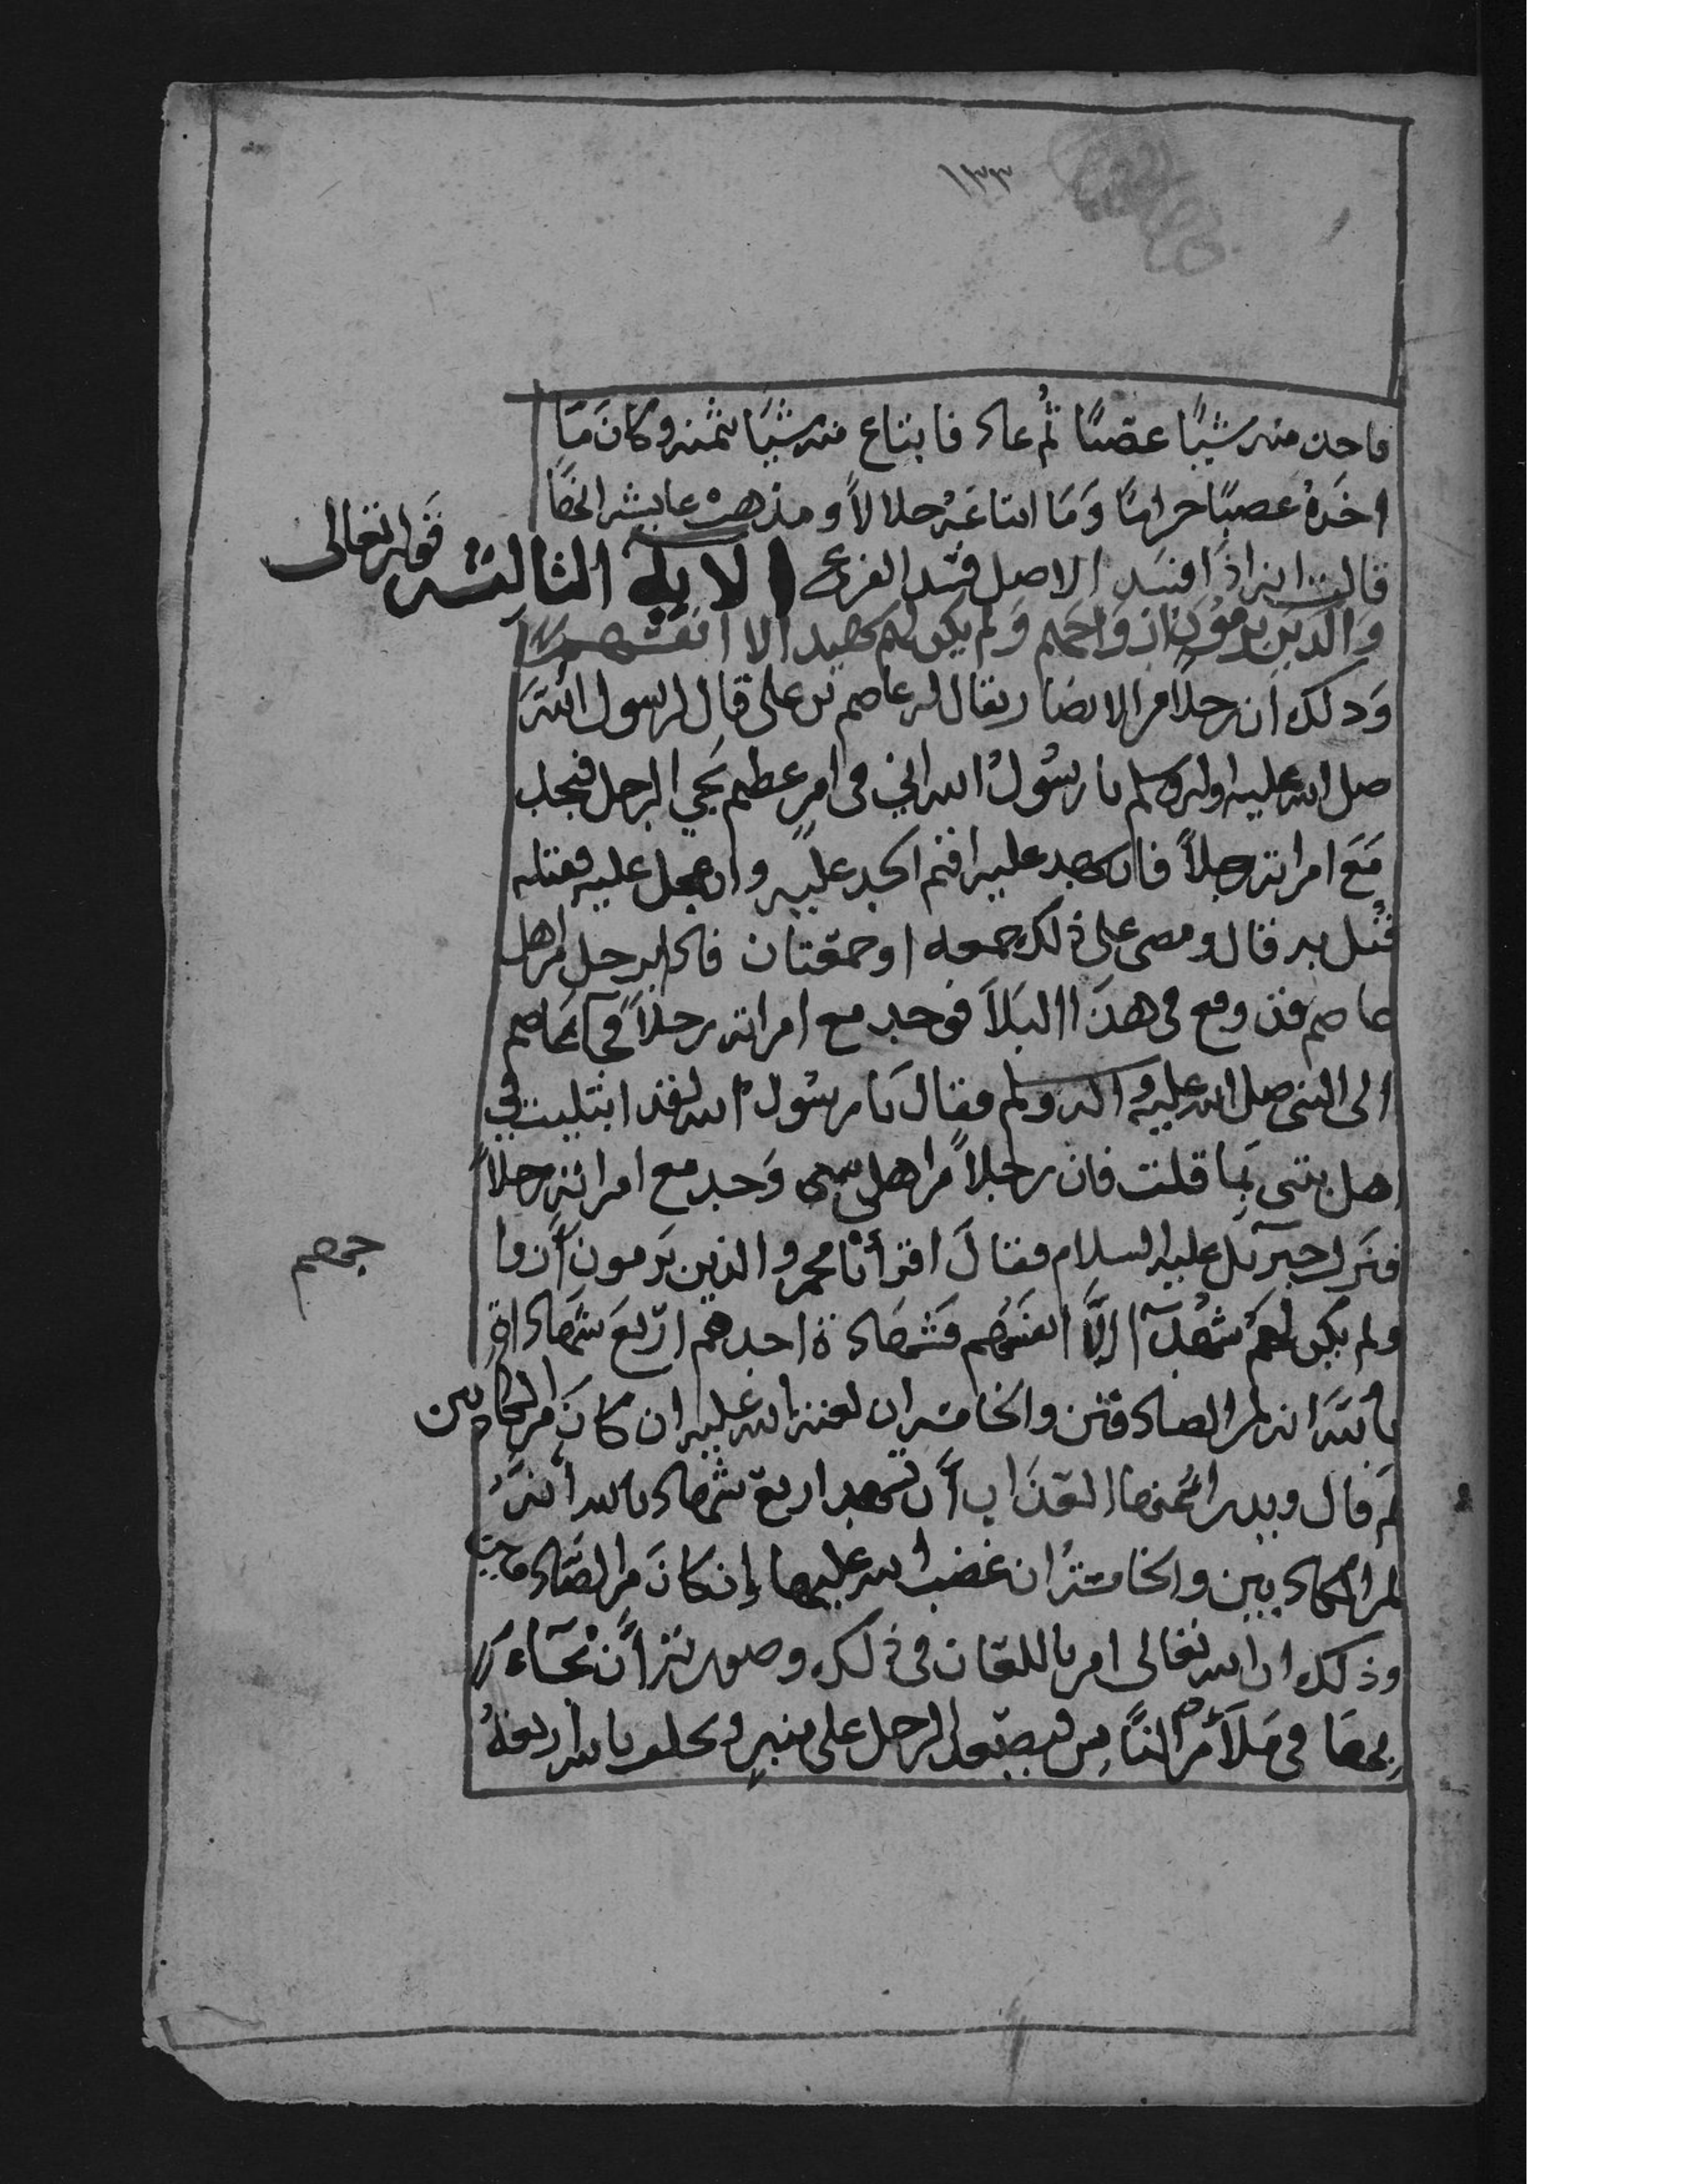 ١٣٣
فاخذ منه شيئًا غصبًا ثُم عاد فابتاع منه شيئًا بثمنه وكانَ مَا
اخذهُ غصبًا حرامًا وَمَا ابتاعَهُ حلالاً ومذهب عايشه ايضًا
قالت انه اذا افسَد الاصل فسد الفرع الاية الثالثه قوله تعالى
وَالذين يرمُونَ ازوَاجهم وَلم يكن لهم شهدا الا انفسهم
وَذلك ان رجلاً من الانصار يقال له عاصم بن على قال لرسول اللهَ
صلى الله عليه واله وسلم يا رسُولُ الله اني في امرٍ عظيم يَجي الرجل فيجد
مَعَ امراته رجلاً فان شهد عليه اقيم الحد عليه وان عجل عليه فقتله
قُتل به قال ومضى على ذلك جمعه او جمعتان فاذا برجل من اهل
عاصم قد وقع في هذَا البَلاَ فوجد مع امراته رجلاً فجآ عَاصم
الى النبى صلى الله عليه واله وسلم فقال يَا رسُول الله لقد ابتليت في
اهل بيتى بمَا قلت فان رجلاً من اهل بيتى وَجد مع امراته رجلاً
فنَزل جبرَئل عليه السلام فقالَ اقرأ يا محمد والذين يَرمون أزوا
جهم
ولم يكن لهمُ شُهدآ الاَّ انفسَهم فشهَادة احدهم ارْبعَ شَهادات
باللهَ انه لمن الصادقين والخامسه ان لعنة الله عليه ان كانَ من الكاذبين
ثم قال ويدرا عَنها العَذَاب أَن تشهد اربع شهاداتٍ بالله انهَُ
لمن الكاذبين والخامسةُ ان غضب الله عليها إن كانَ من الصَّادقين
وذلك ان الله تعالى امر باللعان في ذلك وصورته أَن يُجَاءَ
بهمَا في مَلأَ من النَّاس فيصعد الرجل على منبرٍ ويحلف بالله اربعةُ